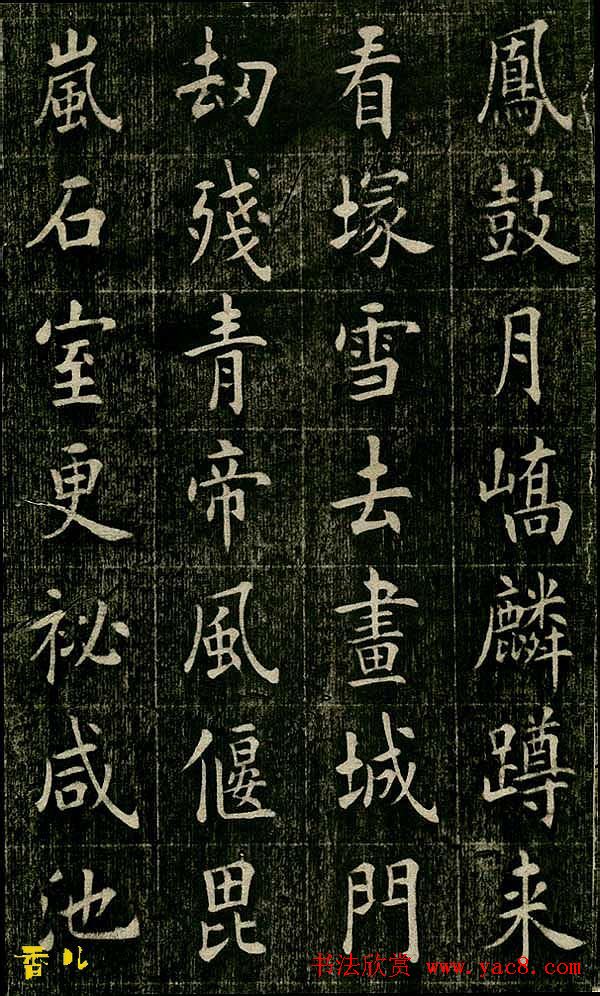 鳳鼓月嶠麟蹲来
看塚雪去畫城門
劫殘青帝風偃毘
嵐石室更祕咸池
香儿
书法欣赏 www.yac8.com